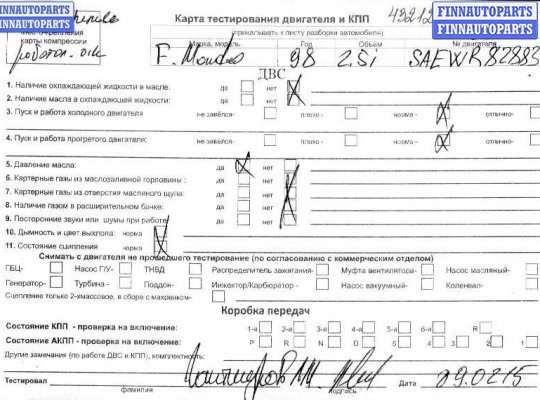 FINNAUTOPARTS FINNAUTOPARTS
FINNAUTOPARTS FINNAUTOPARTS
Карта тестирования двигателя и КПП
(прикалывать к листу разборки автомобиля)
карты компрессии
Марка, модель Год Объём № двигателя
F. Mondeo 98 2.5i SAEWR82883
ДВС
1. Наличие охлаждающей жидкости в масле: да нет
2. Наличие масла в охлаждающей жидкости: да нет
3. Пуск и работа холодного двигателя не завёлся- плохо- норма- отлично-
4. Пуск и работа прогретого двигателя: не завёлся- плохо- норма- отлично-
5. Давление масла: да нет
6. Картерные газы из маслозаливной горловины: да нет
7. Картерные газы из отверстия масляного щупа: да нет
8. Наличие газом в расширительном бачке: да нет
9. Посторонние звуки или шумы при работе: да нет
10. Дымность и цвет выхлопа: норма
11. Состояние сцепления норма
Снимать с двигателя не прошедшего тестирование (по согласованию с коммерческим отделом)
ГБЦ- Насос Г/У- ТНВД Распределитель зажигания- Муфта вентилятора- Насос масляный-
Генератор- Турбина- Поддон- Инжектор/Карбюратор- Насос вакуумный- Коленвал-
Сцепление только 2-хмассовое, в сборе с маховиком-
Коробка передач
Состояние КПП - проверка на включение: 1-я 2-я 3-я 4-я 5-я 6-я R
Состояние АКПП - проверка на включение: P R N D 5 4 3 2 1
Другие замечания (по работе ДВС и КПП), комплектность:
Тестировал Дата 29.02.15
фамилия подпись